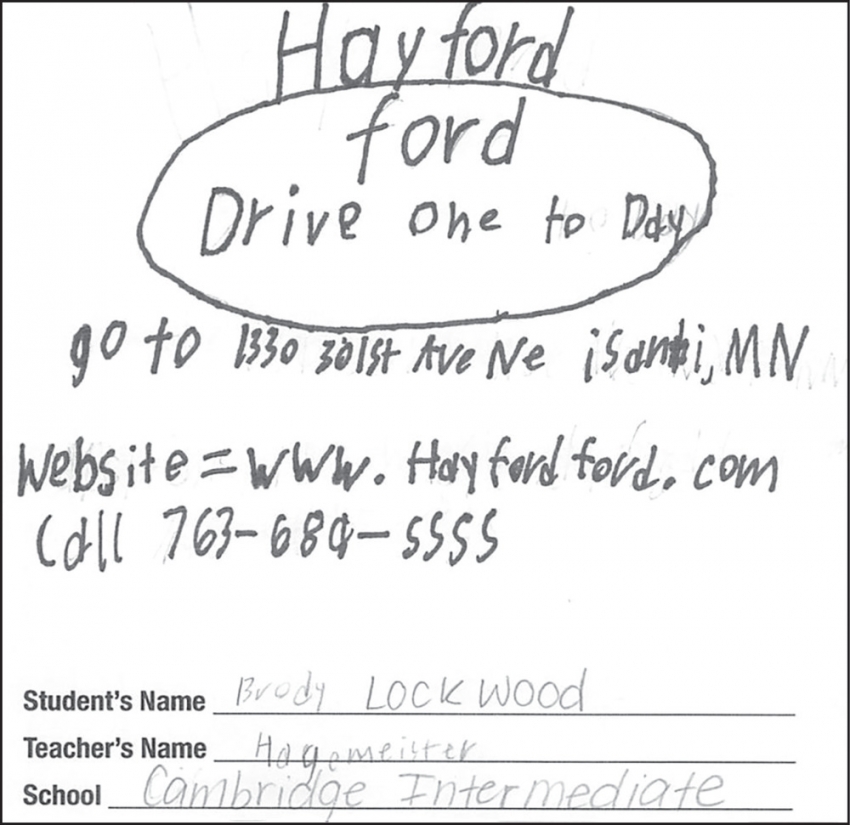 Hayford
ford
Drive one to Day
go to 1330 301st Ave Ne isanti, MN
Website=www.Hayfordford.com
Call 763-689-5555
Student's Name Brody Lockwood
Teacher's Name Hagemeister
School Cambridge Intermediate